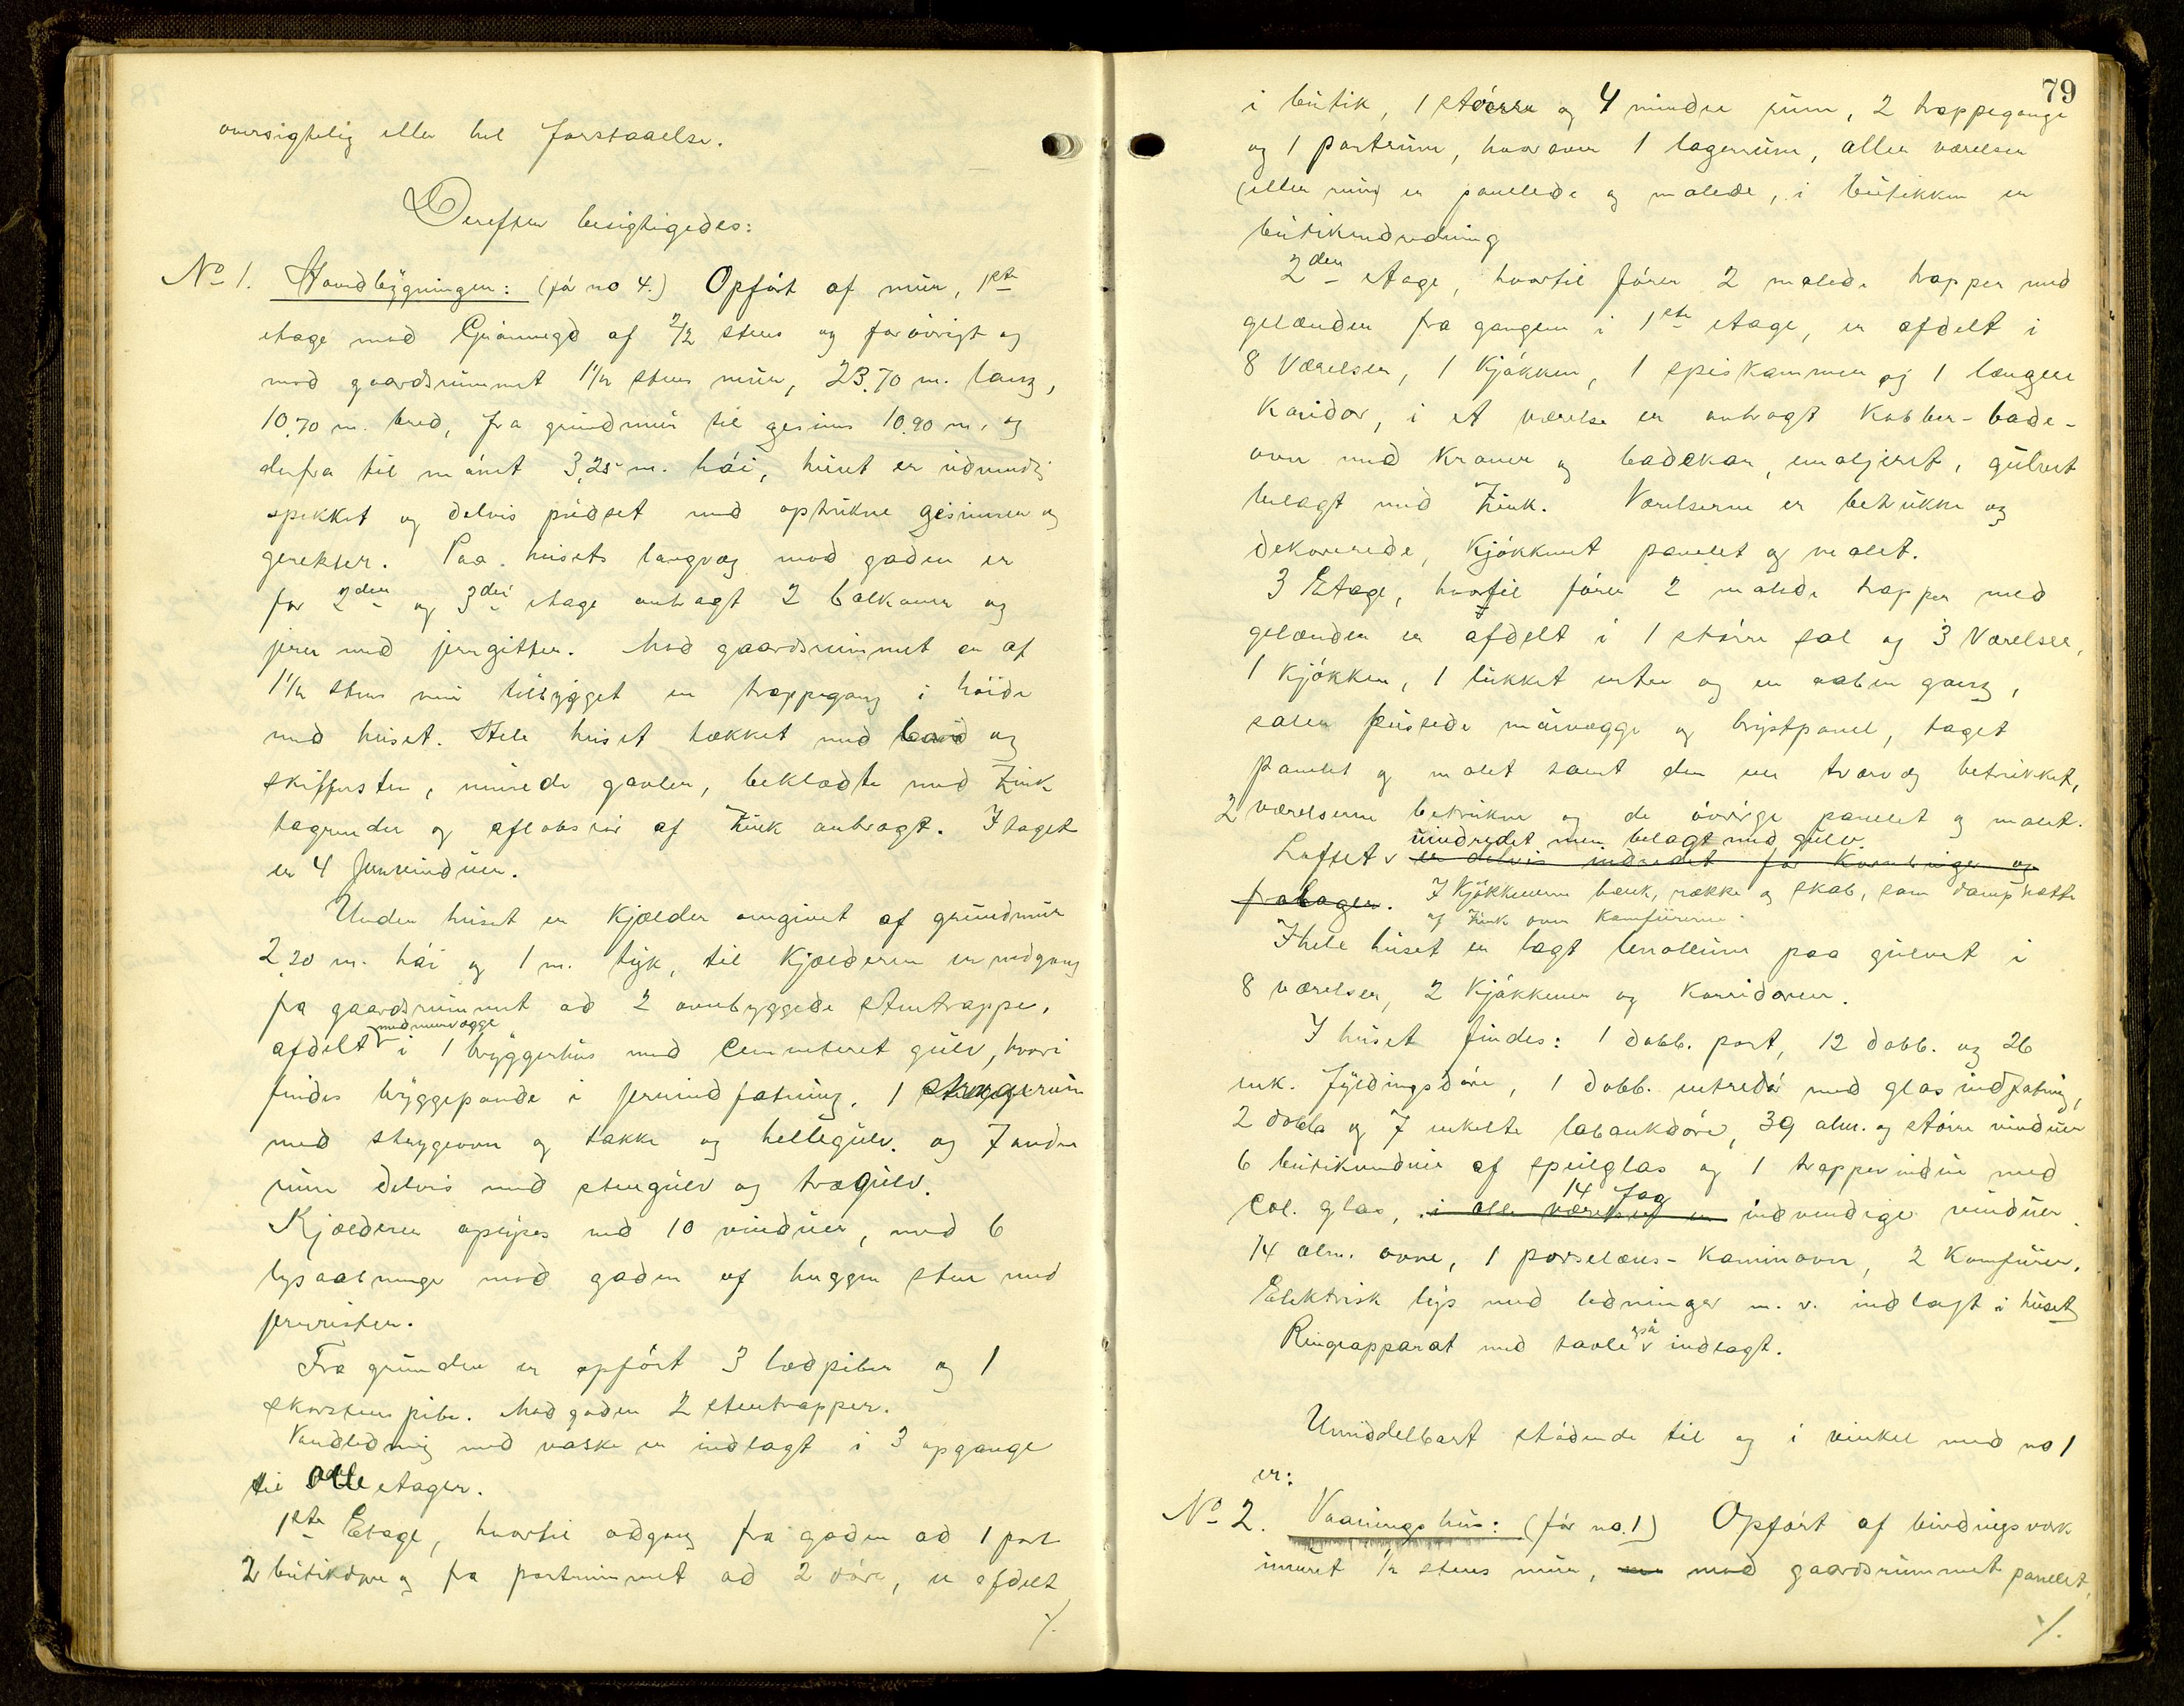 oversigtelig eller hel forstaaelse.
Derefter besigtigedes:
No 1. Hovedbygningen: (før no 4.) Opført af mur, 1ste
etage mod Grønnegd af 2/2 stens og forøvrigt og
mod gaardsrummet 1 1/2 stens mur, 23.70 m. lang,
10.70 m. bred, fra grundmur til gesims 10.90 m. og
derfra til mønet 3,25 m. høi, huset er udvendig
spekket og delvis pudset med optrukne gesimser og
gerekter. Paa husets langvæg mod gaden er
for 2den og 3die etage anbragt 2 balkoner og
jern med jerngitter. Mod gaardsrummet er af
1 1/2 stens mur tilbygget en trappegang i høide
med huset. Hele huset tækket med bord og
skiffersten, murede gavler, beklædte med Zink
tagrender og afløbsrør af Zink anbragt. I taget
er 4 jernvinduer.
Under huset er Kjælder omgivet af grundmur
2,20 m. høi og 1 m. tyk, til Kjælderen er nedgang
fra gaardsrummet ad 2 overbyggede stentrappe,
med murvægge
afdelt i 1 bryggerhus med Cementeret gulv, hvori
findes bryggepande i jernindfatning, 1 strygerum
med strygeovn og takke og hellegulv. og 7 andre
rum delvis med stengulv og trægulv.
Kjælderen oplyses med 10 vinduer, med 6
lysaabninge mod gaden af huggen sten med
jernrister.
Fra grunden er opført 3 lodpiber og 1
skorstenspibe. Mod gaden 2 stentrapper.
Vandledning med vaske er indlagt i 3 opgange
til alle etager.
1ste Etage, hvortil adgang fra gaden ad 1 port
2 butikdøre og fra portrummet ad 2 døre, er afdelt
./.
79
i butik, 1 større og 4 mindre rum, 2 trappegange
og 1 portrum, hvorover 1 lagerrum, aller værelser
(eller rum) er panelede og malede, i butikken er
butikindredning
2den etage, hvortil fører 2 malede trapper med
gelænder fra gangen i 1ste etage, er afdelt i
8 Værelser, 1 Kjøkken, 1 spiskammer og 1 længere
Koridor, i et værelse er anbragt Kobber-bade-
ovn med Kraner og badekar, emaljeret, gulvet
belagt med Zink. Værelserne er betrukke og
dekorerede, Kjøkkenet panelet og malet.
3 Etage, hvortil fører 2 malede trapper med
gelænder er afdelt i 1 større sal og 3 Værelser,
1 Kjøkken, 1 lukket entre og en aaben gang,
salen pussede murvægge og brystpanel, taget
panelet og malet samt den ene tværvæg betrukket,
2 værelserne betrukne og de øvrige panelet og malet.
uindredet men belagt med gulv.
Loftet er delvis indredet for Kornbinger og
frølager. I Kjøkkenerne bænk, række og skab, som damphatte
af Zink over Komfurerne.
I hele huset er lagt linolium paa gulvet i
8 værelser, 2 Kjøkkener og Korridoren.
I huset findes: 1 dobb. port, 12 dobb. og 26
enk. fyldingsdøre, 1 dobb. entredør med glasindfatning,
2 dobb. og 7 enkelte labankdøre, 39 alm. og større vinduer
6 butikvinduer af speilglas og 1 trappevindue med
14 Fag
Col. glas, i alle værelser er indvendige vinduer.
14 alm. ovne, 1 porselæns-Kaminovn, 2 Komfurer,
Elektrisk lys med ledninger m. v. indlagt i huset
også
Ringeapparat med tavle indlagt.
Umiddelbart stødende til og i vinkel med no 1
er:
No 2. Vaaningshus: (før no. 1) Opført af bindingsverk
imuret 1/2 stens mur, mod gaardsrummet panelet,
./.